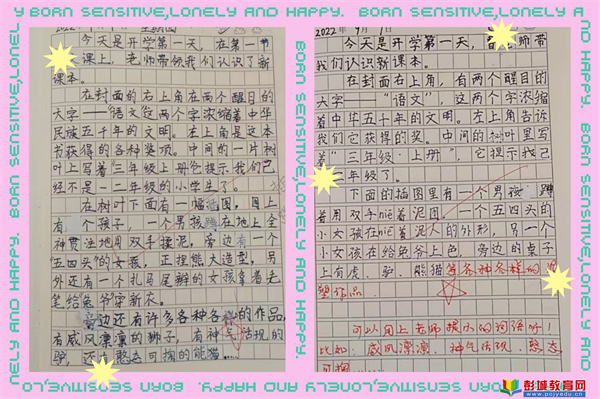 Y BORN SENSITIVE,LONELY AND HAPPY. BORN SENSITIVE,LONELY A
今天是开学第一天，在第一节
课上，老师带领我们认识了新
课本。
在封面的右上角在两个醒目的
大字——“语文”这两个字浓缩着中华
民族五千年的文明。右上角是这本
书获得的各种奖项。中间的一片树
叶上写着“三年级上册”它提示我们已
经不是一二年级的小学生了。
在树叶下面有一幅 图。图上
有 个孩子，一个男孩蹲在地上全
神贯注地用双手揉泥，旁边有一个
“五四头”的女孩，正捏熊大造型。另
外还有一个扎马尾辫的女孩拿着毛
笔给兔爷穿新衣。
旁边还有许多各种各样的作品，
有威风凛凛的狮子，有神气活现的
驴，还有憨态可掬的熊猫
2022年9月1日
今天是开学第一天， 老师带
我们认识新课本。
在封面右上角，自两个醒目的
大字——“语文”，这两个字浓缩
着中华五千年的文明。左上角告诉
我们它获得的奖。中间的树叶里写
着“三年级·上册”，它提示我己
年级了。
下面的插图里有一个男孩 蹲
着用双手niē着泥团。一个五四头的
小女孩在niē着泥人的外形，另一个
小女孩在给兔爷上色，旁边的桌子
上有虎、驼、熊猫等各种各样的
塑作品。
可以用上老师提示的词语呀！
比如：威风凛凛、神气活现、憨态
可掬
BORN SENSITIVE,LONELY AND HAPPY.
彭城教育网
www.pcjyedu.cn